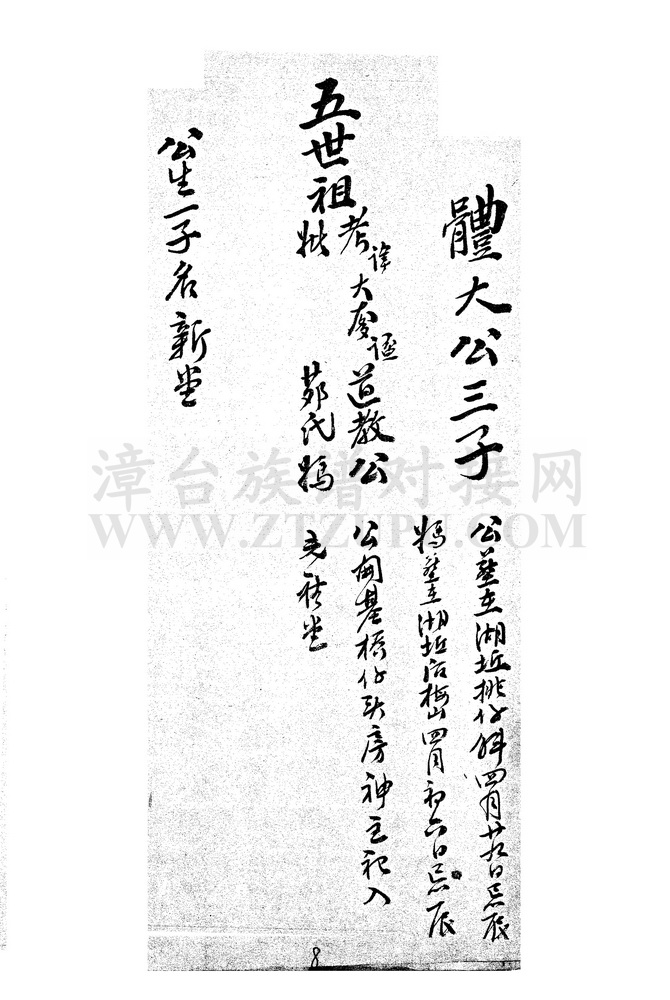 體大公三子
公葬在湖坵桃仔斜四月廿九日忌辰
媽葬在湖坵后梅山四月初六日忌辰
五世祖
考 諱大 謚道教公
妣 氏媽
公開基橋仔頭房神主祀入
堂
公生一子名新堂
8
漳台族谱对接网
WWW.ZTZUPU.COM